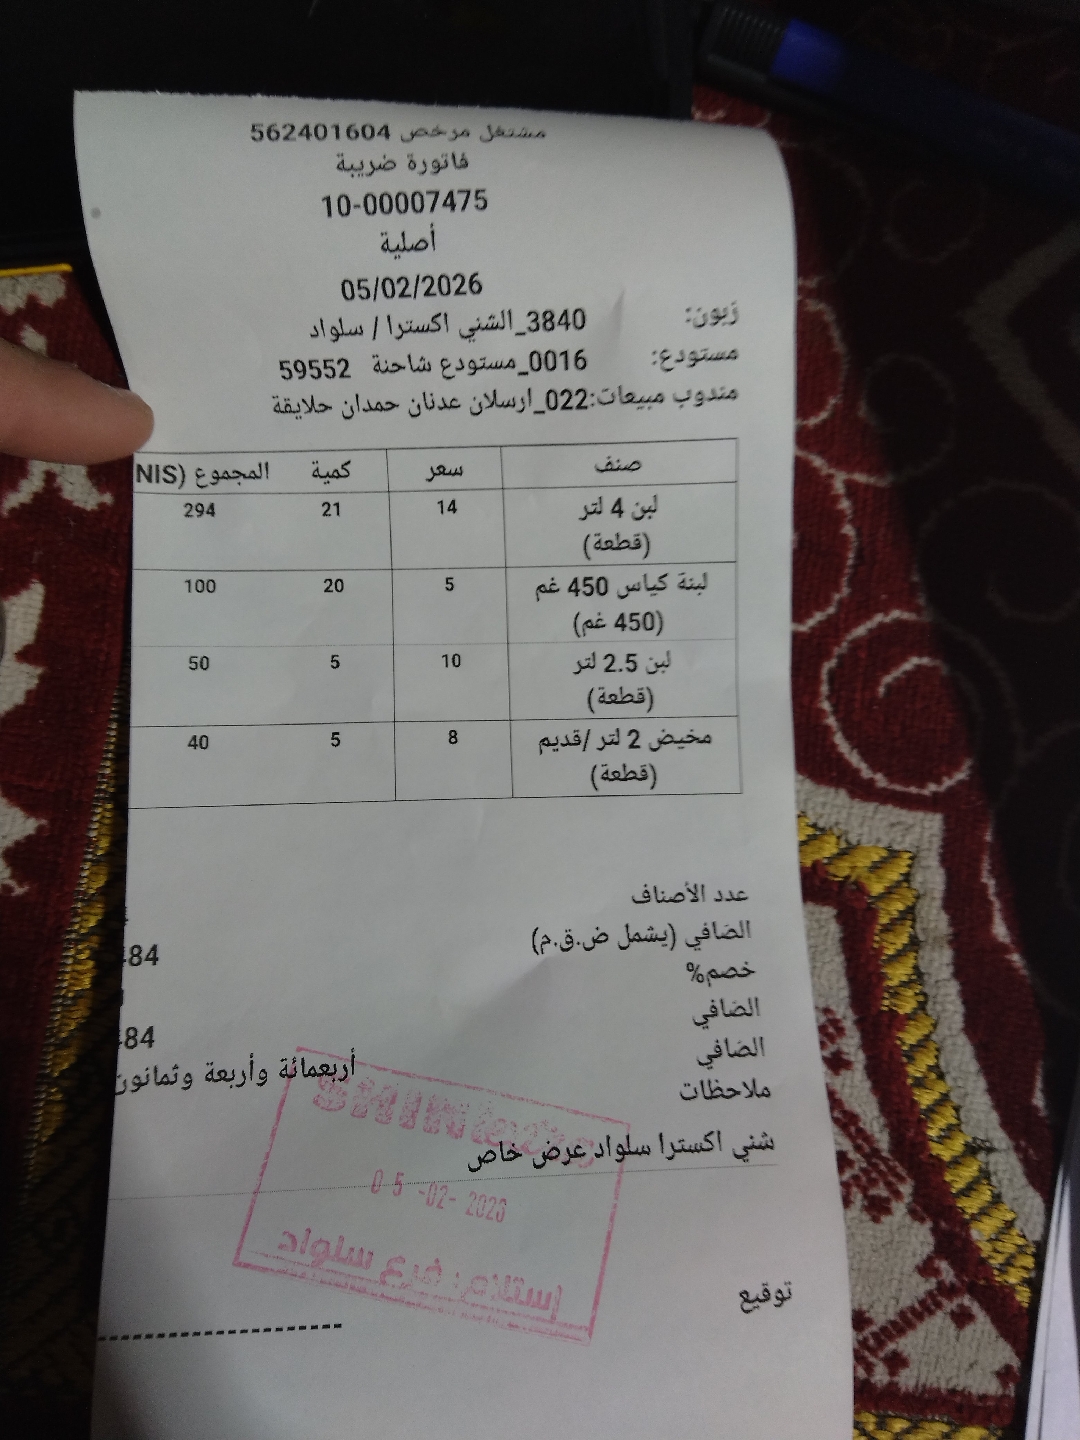 مشتغل مرخص 562401604
فاتورة ضريبة
10-00007475
أصلية
05/02/2026
زبون: 3840_الشني اكسترا / سلواد
مستودع: 0016_مستودع شاحنة 59552
مندوب مبيعات:022_ارسلان عدنان حمدان حلايقة
صنف سعر كمية المجموع (NIS
لبن 4 لتر 14 21 294
(قطعة)
لبنة كياس 450 غم 5 20 100
(450 غم)
لبن 2.5 لتر 10 5 50
(قطعة)
مخيض 2 لتر /قديم 8 5 40
(قطعة)
عدد الأصناف
الصافي (يشمل ض.ق.م) 484
خصم%
الصافي 484
الصافي أربعمائة وأربعة وثمانون
ملاحظات
شني اكسترا سلواد عرض خاص
05-02-2026
إستلام: فرع سلواد
توقيع